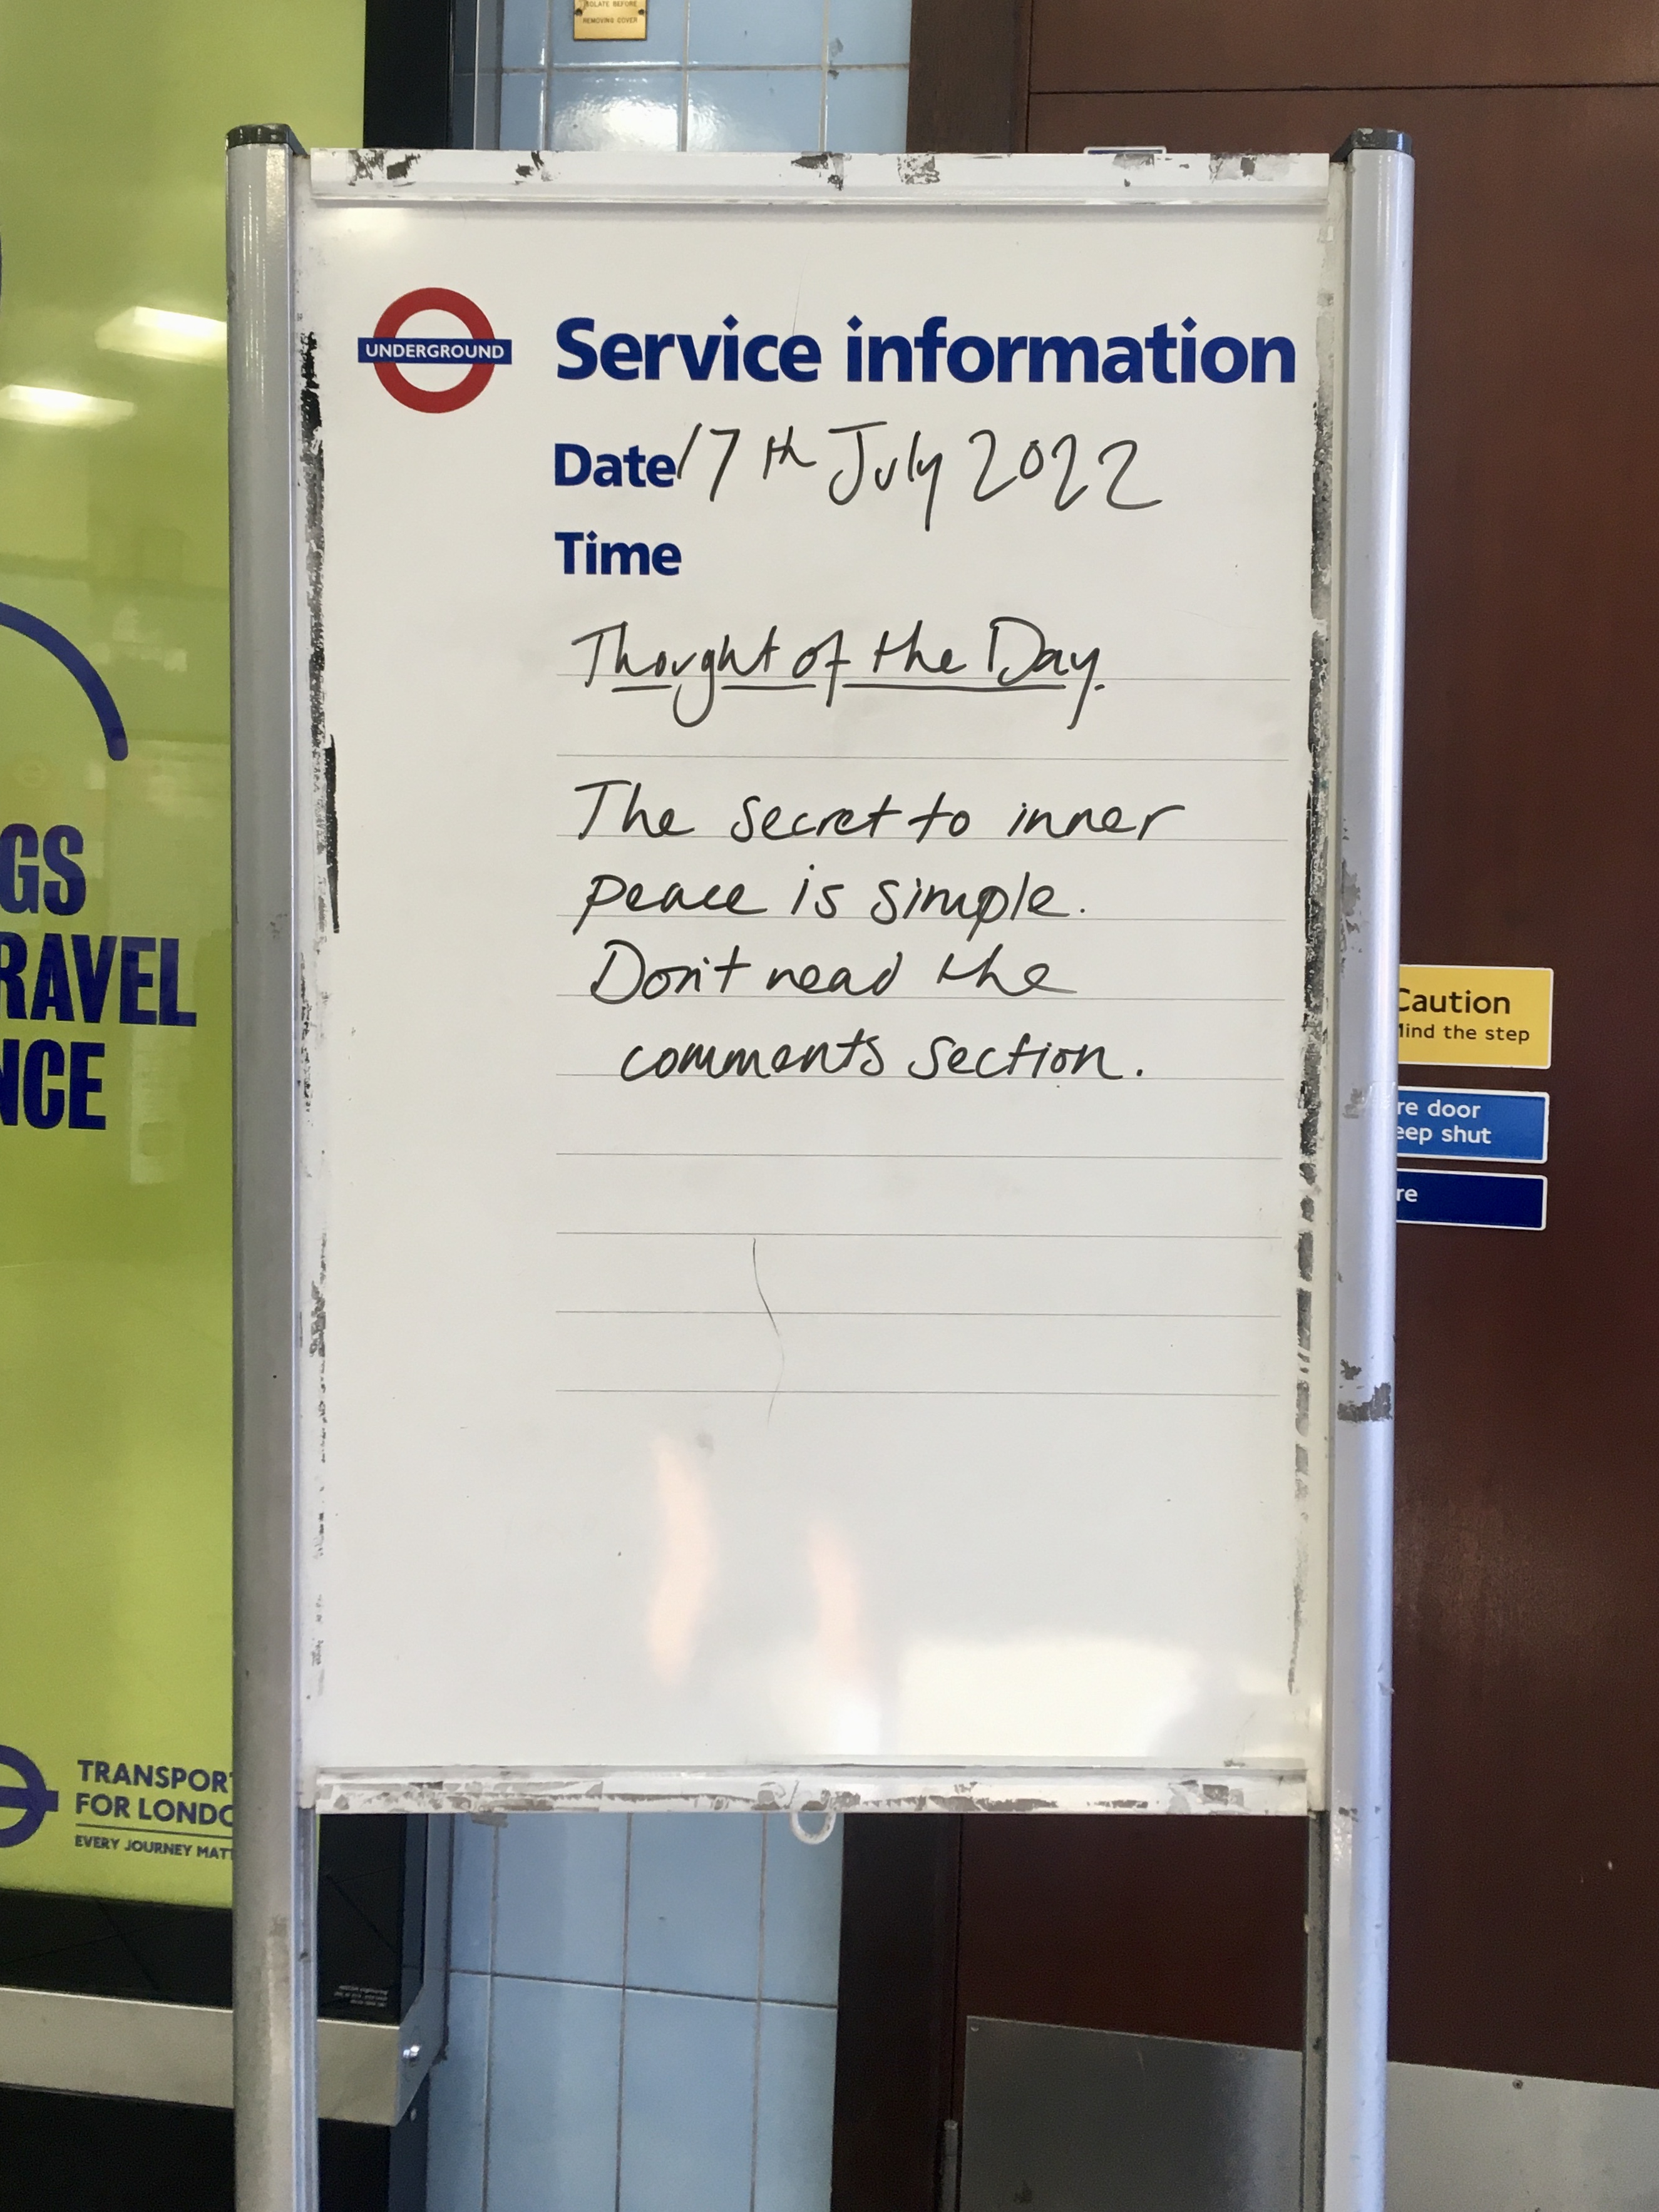 ISOLATE BEFORE
REMOVING COVER
UNDERGROUND
Service information
Date 17th July 2022
Time
Thought of the Day.
The secret to inner
peace is simple.
Don't read the
comments section.
GS
RAVEL
NCE
TRANSPORT
FOR LONDO
EVERY JOURNEY MATT
Caution
Mind the step
re door
eep shut
re